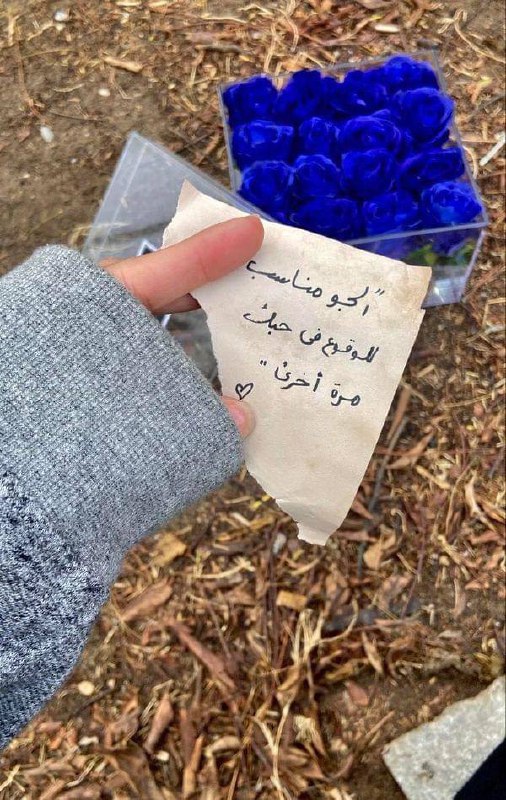 "الجو مناسب
للوقوع في حبك
مرة أخرى"